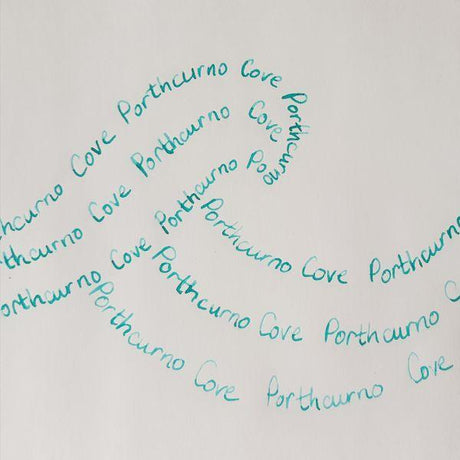 thcurno Cove Porthcurno Cove Porthcurno
rthcurno Cove Porthcurno Cove
Porthcurno Cove Porthcurno Po
Porthcurno Cove Porthcurno
Porthcurno Cove Porthcurno C
Porthcurno Cove Porthcurno Cove